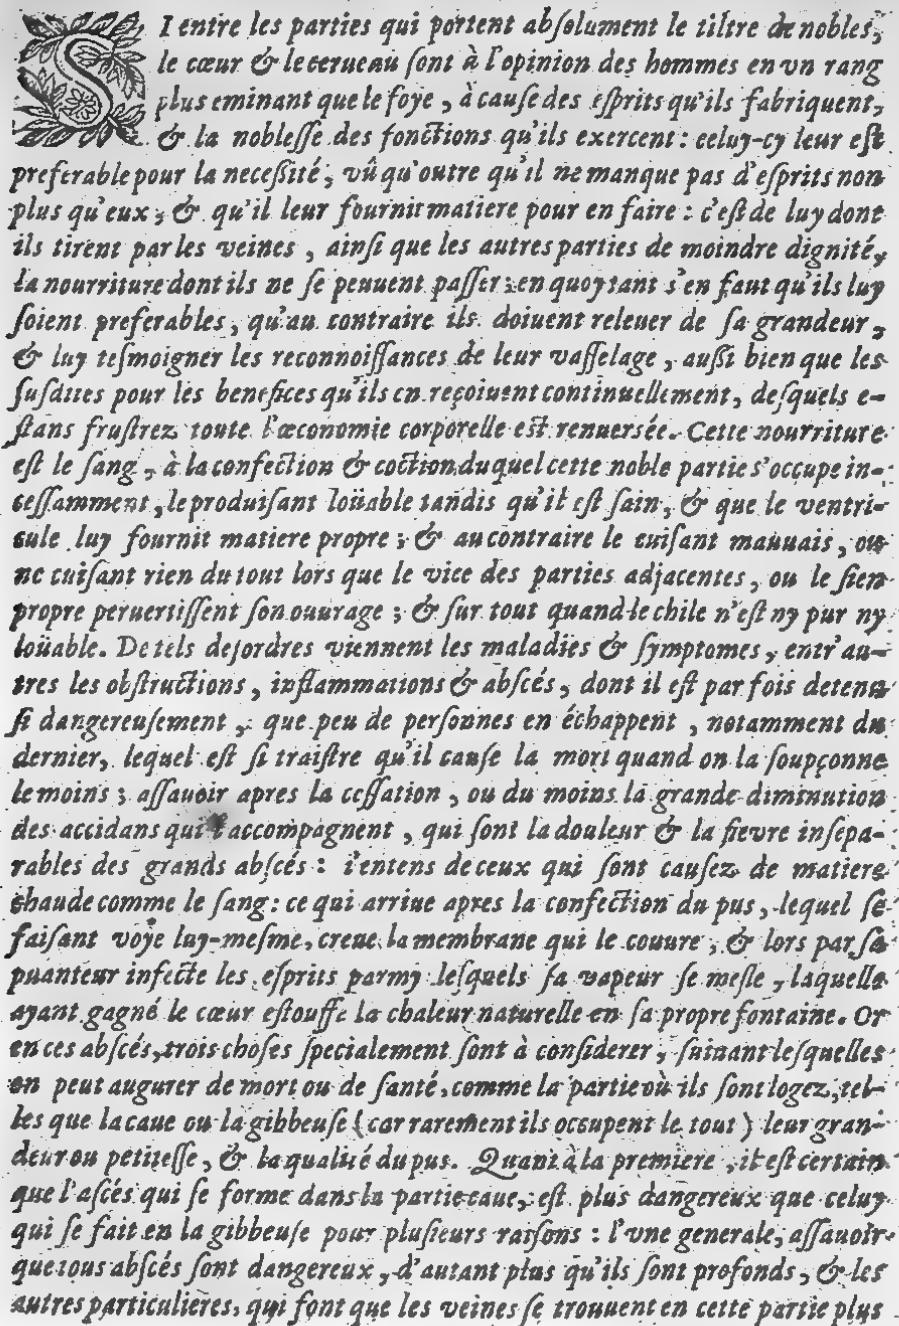 SI entre les parties qui portent abſolument le tiltre de nobles,
le cœur & le cerueau ſont à l'opinion des hommes en vn rang
plus eminant que le foye, à cauſe des eſprits qu'ils fabriquent,
& la nobleſſe des fonctions qu'ils exercent : celuy-cy leur eſt
preferable pour la neceſſité, vû qu'outre qu'il ne manque pas d'eſprits non
plus qu'eux, & qu'il leur fournit matiere pour en faire : c'eſt de luy dont
ils tirent par les veines, ainſi que les autres parties de moindre dignité,
la nourriture dont ils ne ſe peuuent paſſer : en quoy tant s'en faut qu'ils luy
ſoient preferables, qu'au contraire ils doiuent releuer de ſa grandeur,
& luy teſmoigner les reconnoiſſances de leur vaſſelage, auſſi bien que les
ſuſdites pour les benefices qu'ils en reçoiuent continuellement, deſquels e-
ſtans fruſtrez toute l'œconomie corporelle eſt renuersée. Cette nourriture
eſt le ſang, à la confection & coction duquel cette noble partie s'occupe in-
ceſſamment, le produiſant loüable tandis qu'il eſt ſain, & que le ventri-
cule luy fournit matiere propre ; & au contraire le cuiſant mauuais, ou
ne cuiſant rien du tout lors que le vice des parties adjacentes, ou le ſien
propre peruertiſſent ſon ouurage ; & ſur tout quand le chile n'eſt ny pur ny
loüable. De tels deſordres viennent les maladies & ſymptomes, entr'au-
tres les obſtructions, inflammations & abſcés, dont il eſt par fois detenu
ſi dangereuſement, que peu de perſonnes en échappent, notamment du
dernier, lequel eſt ſi traiſtre qu'il cauſe la mort quand on la ſoupçonne
le moins ; aſſauoir apres la ceſſation, ou du moins la grande diminution
des accidans qui l'accompagnent, qui ſont la douleur & la fievre inſepa-
rables des grands abſcés : i'entens de ceux qui ſont cauſez de matiere
chaude comme le ſang : ce qui arriue apres la confection du pus, lequel ſe
faiſant voye luy-meſme, creue la membrane qui le couure, & lors par ſa
puanteur infecte les eſprits parmy leſquels ſa vapeur ſe meſle, laquelle
ayant gagné le cœur eſtouffe la chaleur naturelle en ſa propre fontaine. Or
en ces abſcés, trois choſes ſpecialement ſont à conſiderer, ſuiuant leſquelles
on peut augurer de mort ou de ſanté, comme la partie où ils ſont logez, tel-
les que la caue ou la gibbeuſe (car rarement ils occupent le tout) leur gran-
deur ou petiteſſe, & la qualité du pus. Quant à la premiere, il eſt certain
que l'aſcés qui ſe forme dans la partie caue, eſt plus dangereux que celuy
qui ſe fait en la gibbeuſe pour pluſieurs raiſons : l'vne generale, aſſauoir
que tous abſcés ſont dangereux, d'autant plus qu'ils ſont profonds, & les
autres particulieres, qui font que les veines ſe trouuent en cette partie plus